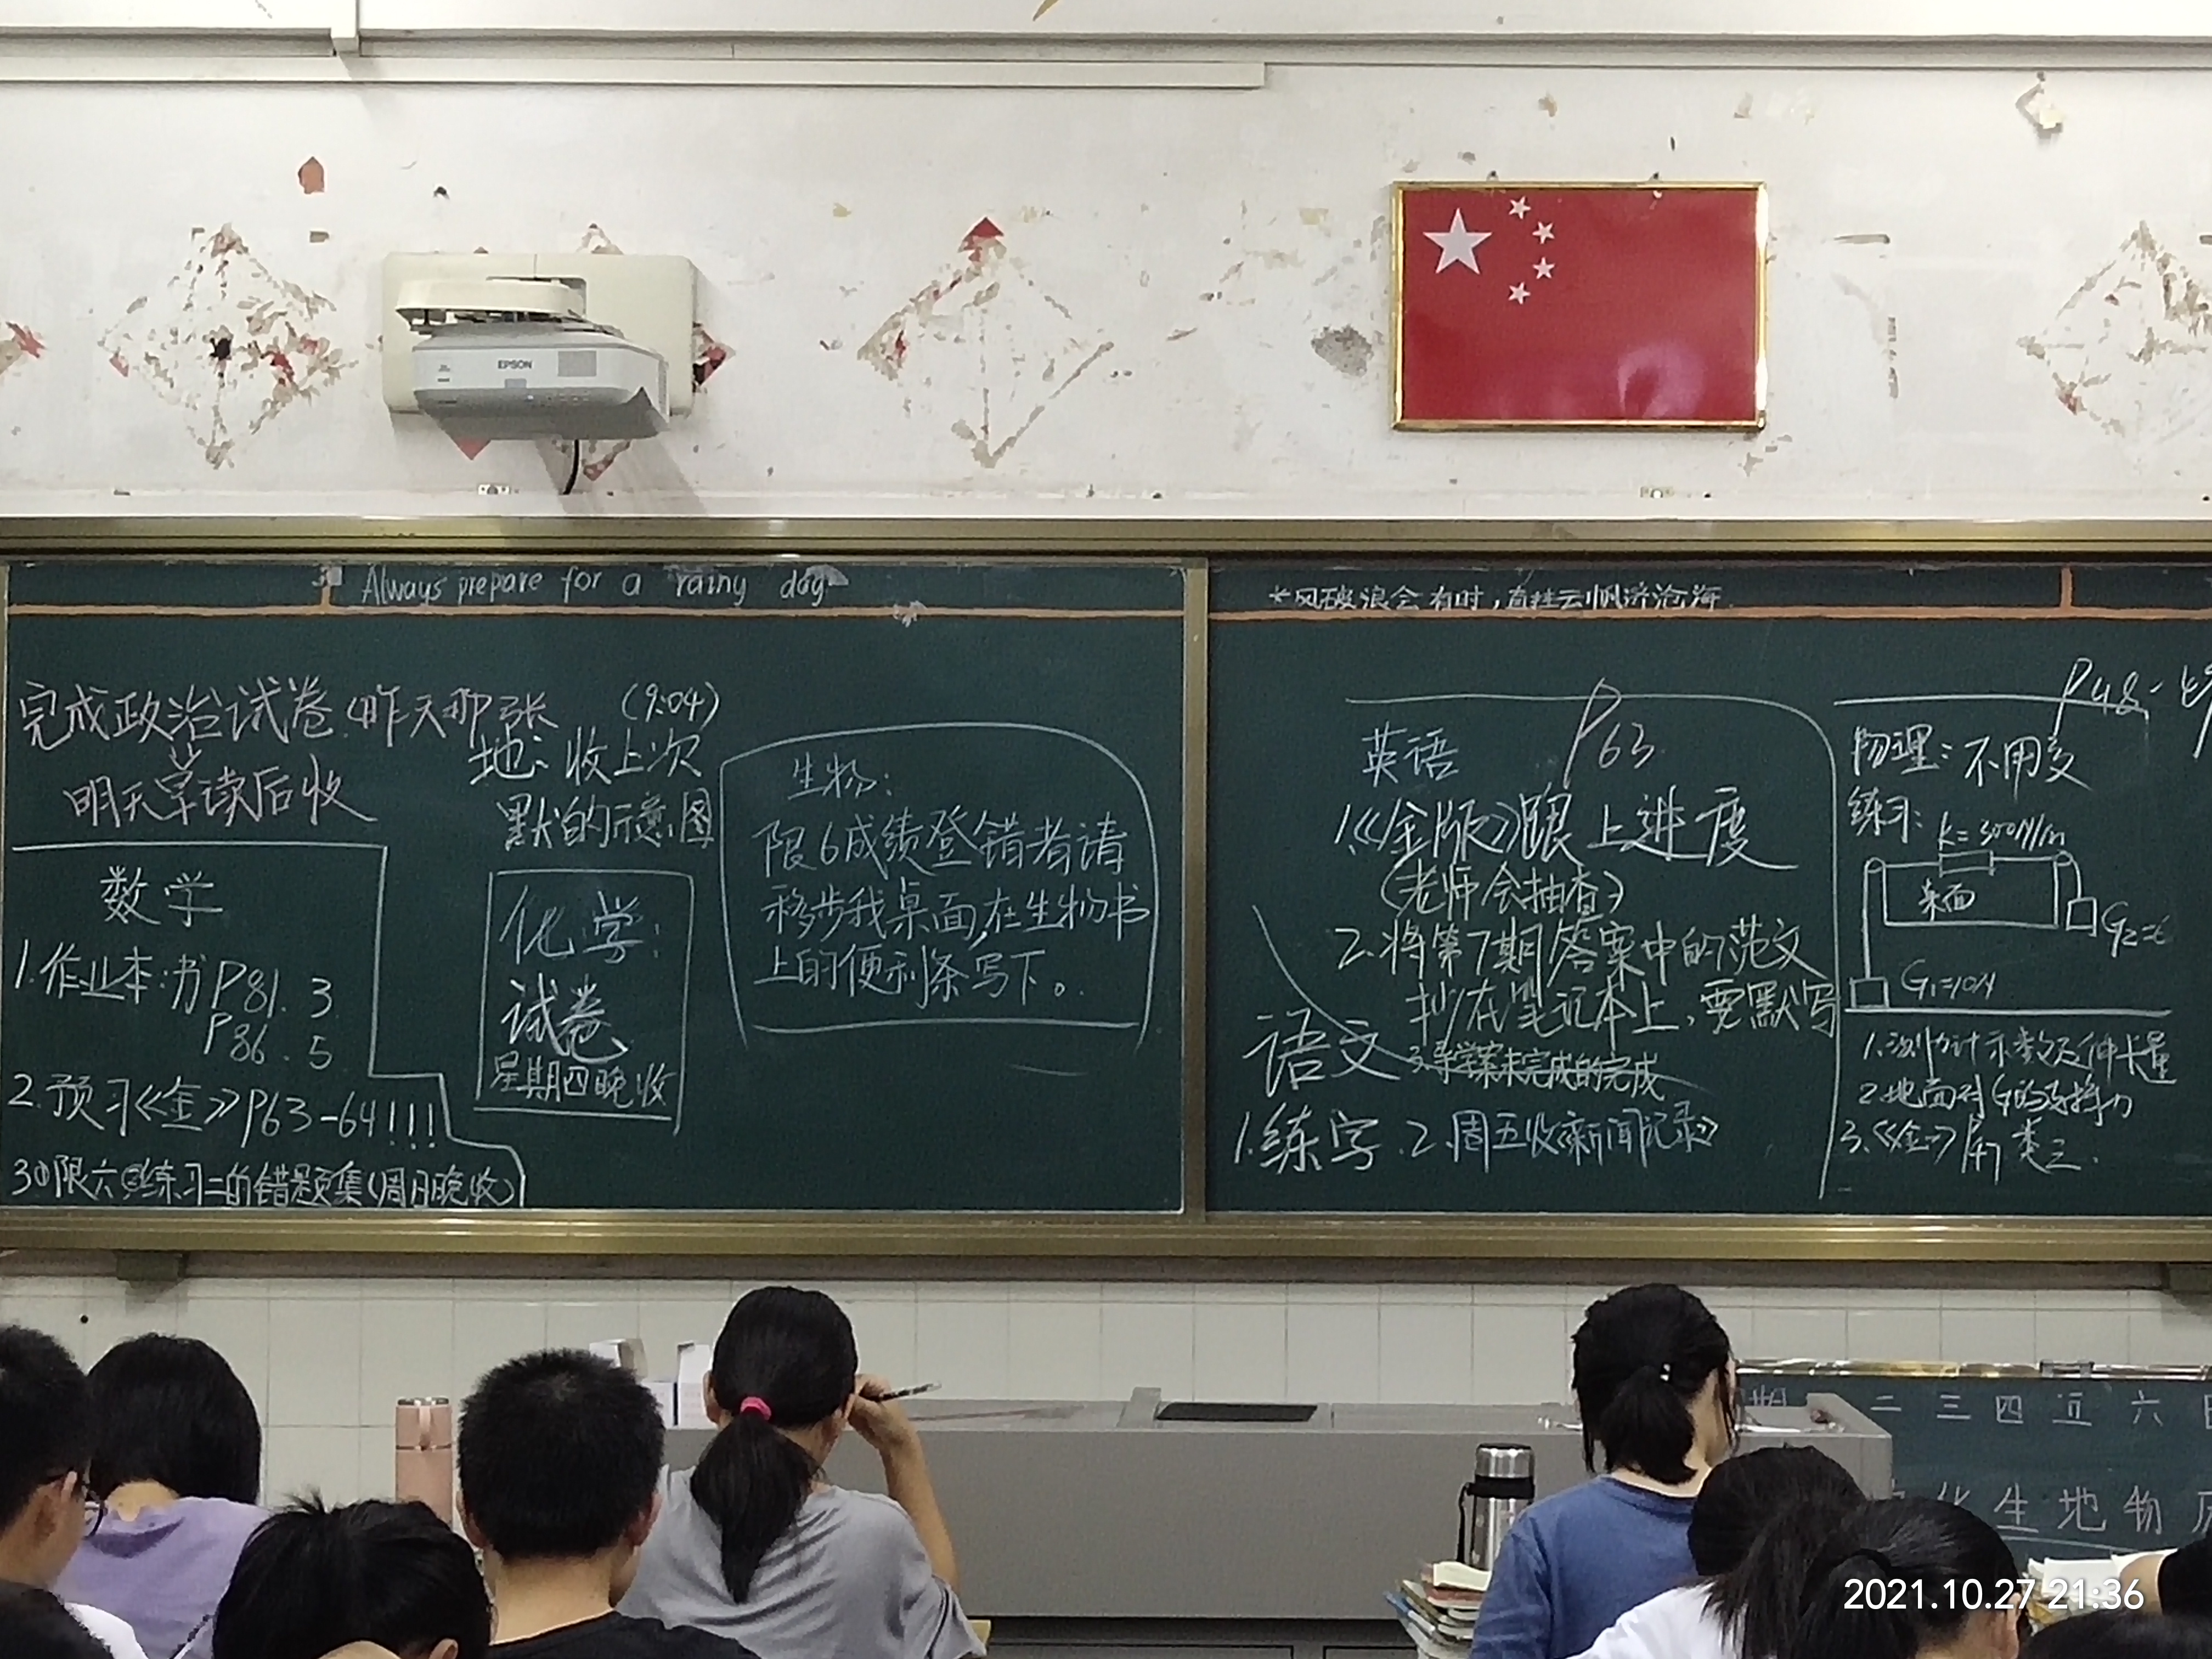 EPSON
Always prepare for a rainy day
长风破浪会有时,直挂云帆济沧海
完成政治试卷(昨天那张
明天早读后收
(9:04)
地:收上次
默的示意图
数学
1.作业本:书P81. 3
P86. 5
2.预习《金》P63-64!!!
3①限六②练习二的错题集(周日晚收)
化学:
试卷
星期四晚收
生物:
限6成绩登错者请
移步我桌面,在生物书
上的便利条写下。
英语 P63
1.《金版》跟上进度
(老师会抽查)
2.将第7期答案中的范文
抄在笔记本上,要默写
3.导学案未完成的完成
语文
1.练字.2.周五收《新闻记录》
P48-
物理:不用交
练习:k=300N/m
桌面
G2=6
G1=10N
1.测力计示数及伸长量
2.地面对G1的支持力
3.《金》 类三.
期 二 三 四 五 六 日
化 生 地 物 历
2021.10.27 21:36